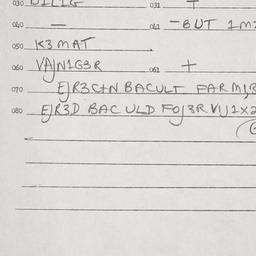 030 DILIG 031 T
040 — 041 -BUT 1M
050 K3 MAT
060 VAJN1G3R 061 +
070 EJR3CTN BACULT FARMJR
080 EJR3D BAC ULD FOJ3RVIJ1X2